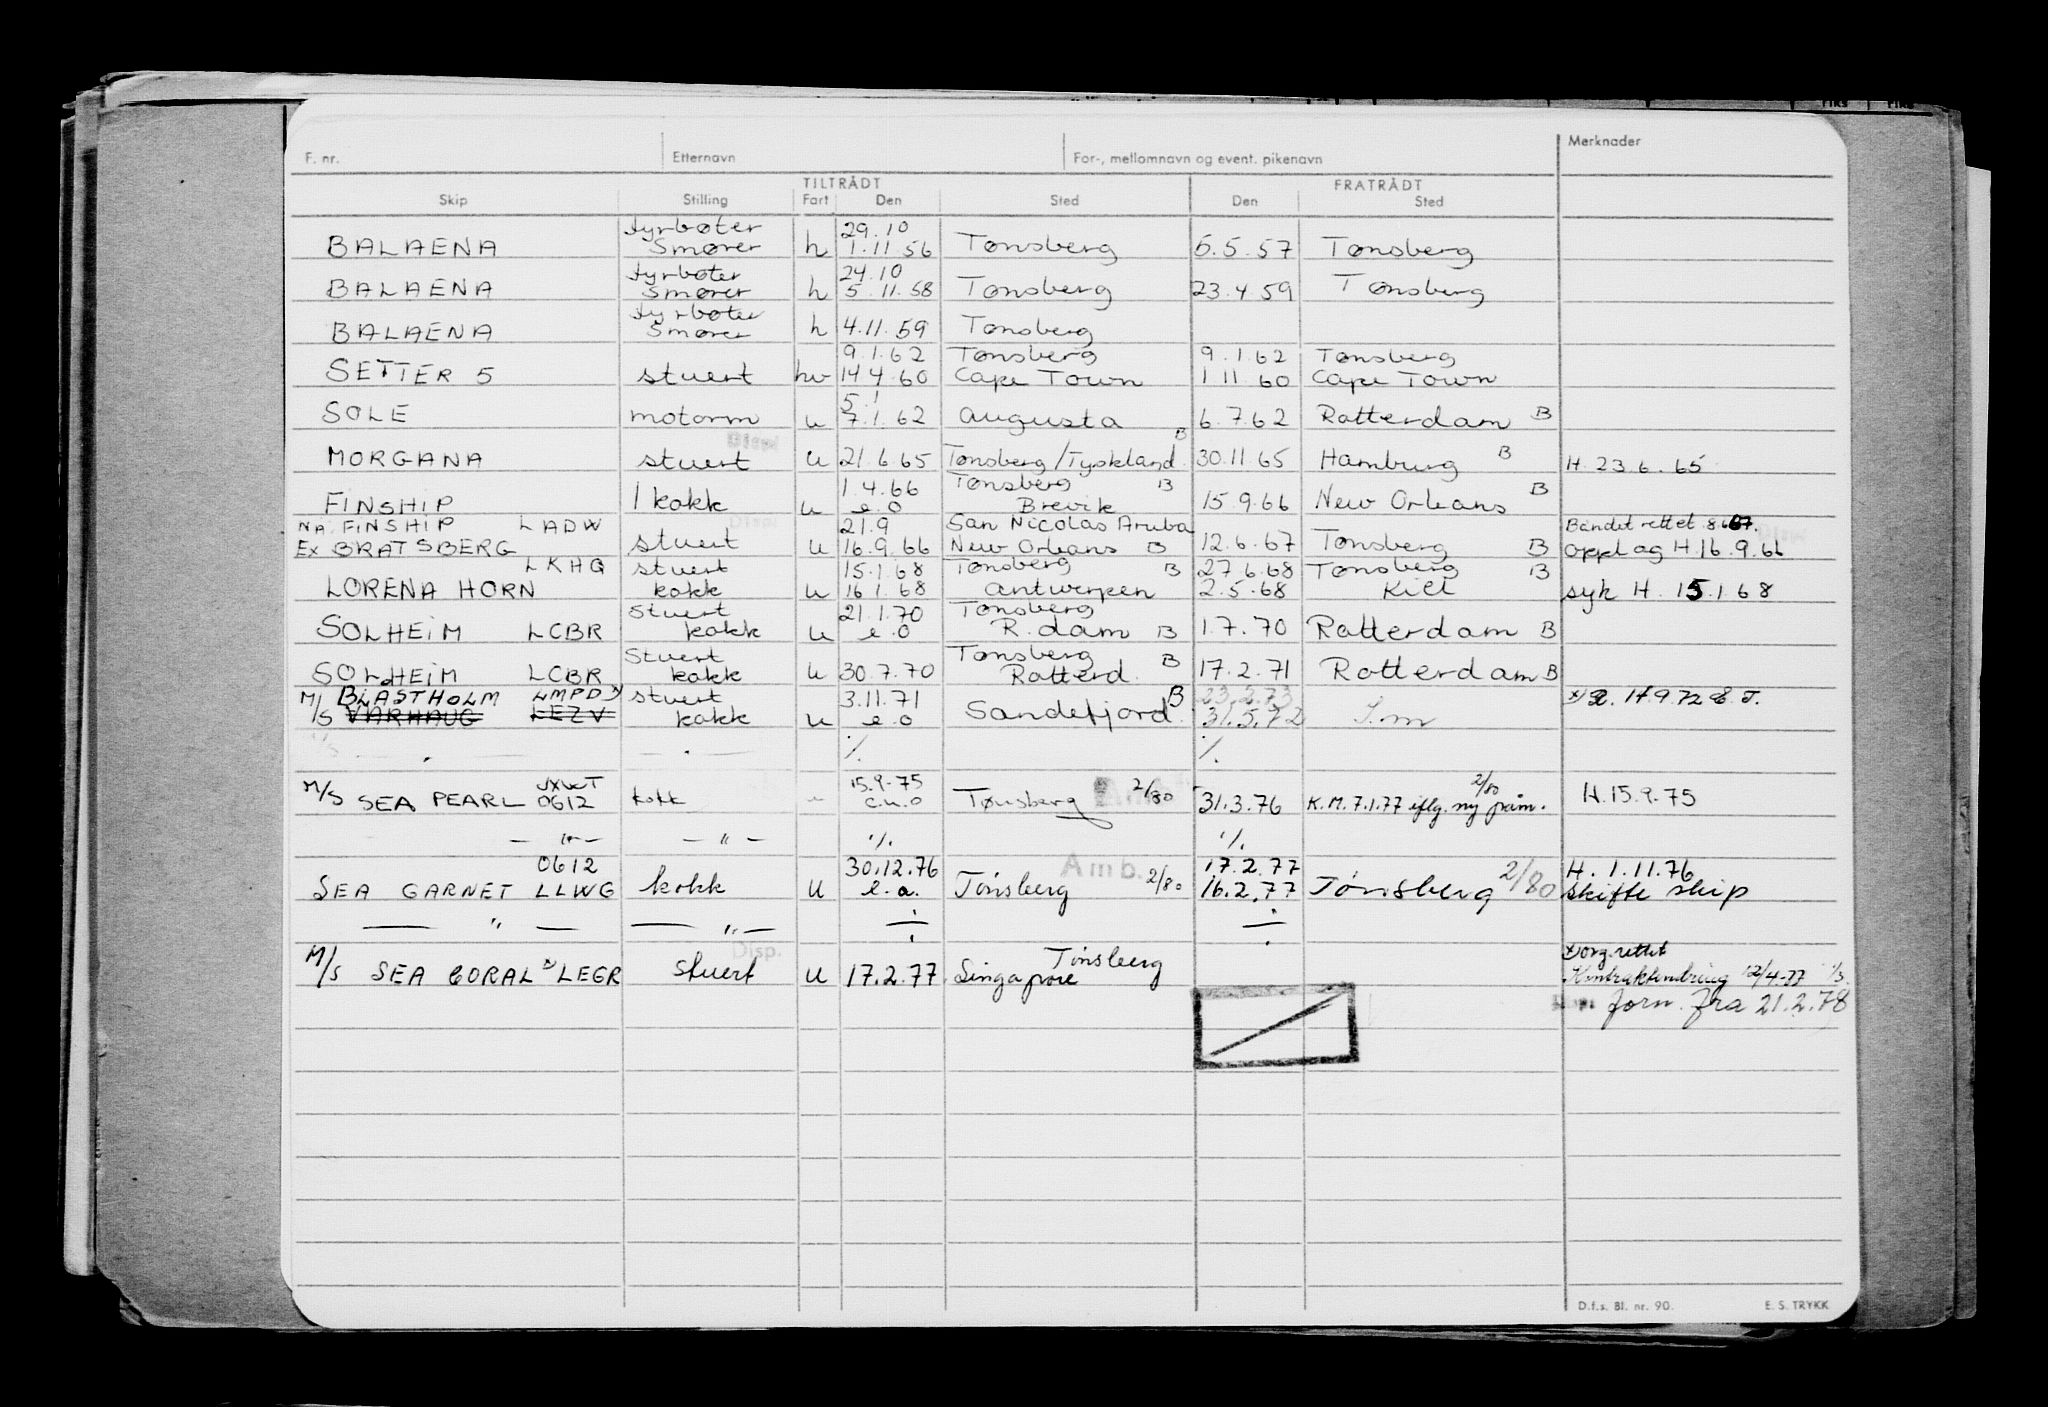 F. nr. Etternavn For-, mellomnavn og event. pikenavn Merknader
TILTRÅDT FRATRÅDT
Skip Stilling Fart Den Sted Den Sted
fyrbøter 29.10
BALAENA Smører h 1.11 56 Tønsberg 6.5.57 Tønsberg
fyrbøter 24.10
BALAENA Smører h 5.11.58 Tønsberg 23.4.59 Tønsberg
fyrbøter
BALAENA Smører h 4.11.59 Tønsberg
9.1.62 Tønsberg 9.1.62 Tønsberg
SETTER 5 stuert hv 14 4.60 Cape Town 1 11 60 Cape Town
5.1
SOLE motorm u 7.1.62 Augusta 6.7.62 Rotterdam B
B
MORGANA stuert u 21.6.65 Tønsberg/Tyskland 30.11.65 Hamburg B H. 23.6.65
1.4.66 Tønsberg B
FINSHIP 1 kokk u e.o Brevik 15.9.66 New Orleans B
NÅ FINSHIP LADW 21.9 San Nicolas Aruba Bandet rettet
Ex BRATSBERG stuert u 16.9.66 New Orleans B 12.6.67 Tønsberg B Oppl ag H.16.9.66
LKHQ stuert 15.1.68 Tønsberg B 27.6.68 Tønsberg B
LORENA HORN kokk u 16 1.68 Antwerpen 2.5.68 Kiel syk H. 15.1.68
Stuert 21.1.70 Tønsberg
SOLHEIM LCBR kokk u e.o R.dam B 1.7.70 Rotterdam B
Stuert Tønsberg
SOLHEIM LCBR kokk u 30.7.70 Rotterd. B 17.2.71 Rotterdam B
M/S BLASTHOLM LMPD x) stuert 3.11.71 B 23.2.73 x)
VARHAUG LEZV kokk u e.o Sandefjord 31.5.72 S.m
— . — ./. ./.
15.9.75 2/80 2/80
M/S SEA PEARL 0612 kokk Tønsberg 31.3.76 K.M. 7.1.77 iflg. ny påm. H.15.9.75
— " — — " — ./. ./.
0612 30.12.76 Amb. 17.2.77 H. 1.11.76
SEA GARNET LLWG kokk u e.o. Tønsberg 2/80 16.2.77 Tønsberg 2/80 skifte skip
— " — — " — ÷ ÷
Disp. Tønsberg x) org. rettet
M/S SEA CORAL x) LEGR stuert u 17.2.77 Singapore Kontraktendring 12/4-77
Forn. fra 21.2.78
D.f.s. Bl. nr. 90. E. S. TRYKK